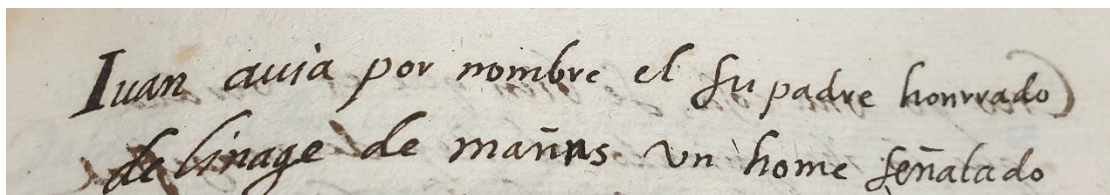 Iuan auia por nombre el su padre honrrado
de linage de mañas un home señalado